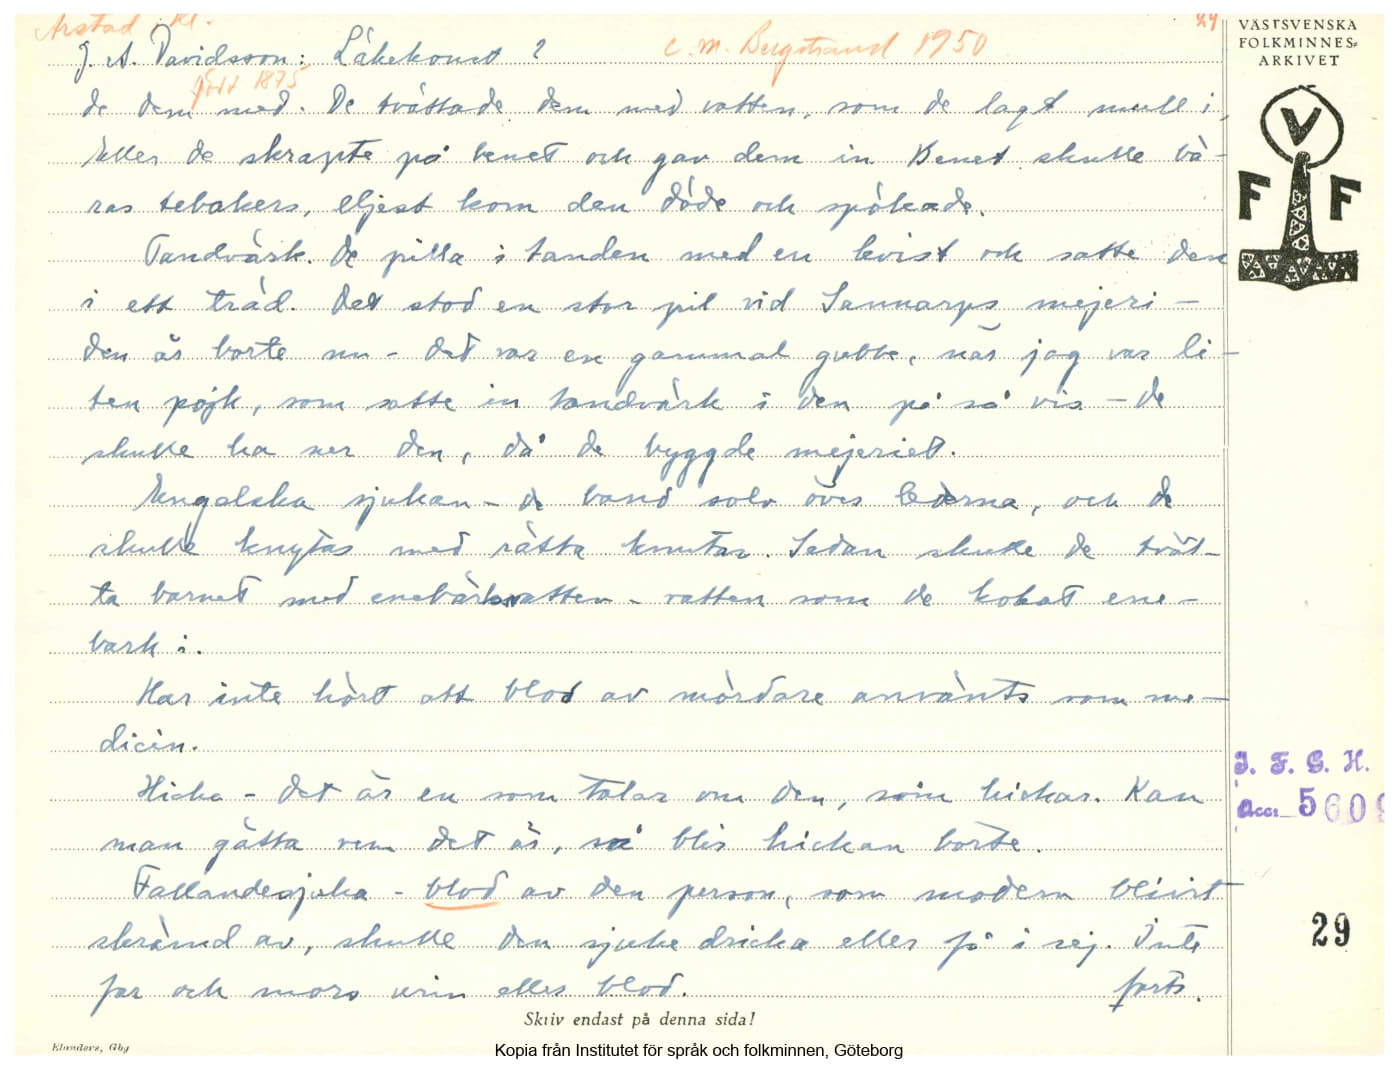 Årstad, Hl.
24
J. A. Davidsson: Läkekonst 2
C. M. Bergstrand 1950
född 1875
VÄSTSVENSKA
FOLKMINNES=
ARKIVET
V
F F
de dem med. De tvättade dem med vatten, som de lagt mull i,
Eller de skrapte på benet och gav dem in. Benet skulle bä-
ras tebakers, eljest kom den döde och spökade.
Tandvärk. De pilla i tanden med en kvist och satte den
i ett träd. Det stod en stor pil vid Sannarps mejeri -
den är borte nu - det var en gammal gubbe, när jag var li-
ten pojk, som satte in tandvärk i den på så vis - de
skulle ha ner den, då de byggde mejeriet.
Engelska sjukan - de band solv över lederna, och de
skulle knytas med rätta knutar. Sedan skulle de tvät-
ta barnet med enebarksvatten - vatten som de kokat ene-
bark i.
Har inte hört att blod av mördare använts som me-
dicin.
Hicka - det är en som talar om den, som hickar. Kan
man gätta vem det är, så blir hickan borte.
Fallandesjuka - blod av den person, som modern blivit
skrämd av, skulle den sjuke dricka eller få i sej. Inte
far och mors urin eller blod.
forts.
I. F. G. H.
Acc: 5609
29
Skriv endast på denna sida!
Elanders, Gbg
Kopia från Institutet för språk och folkminnen, Göteborg